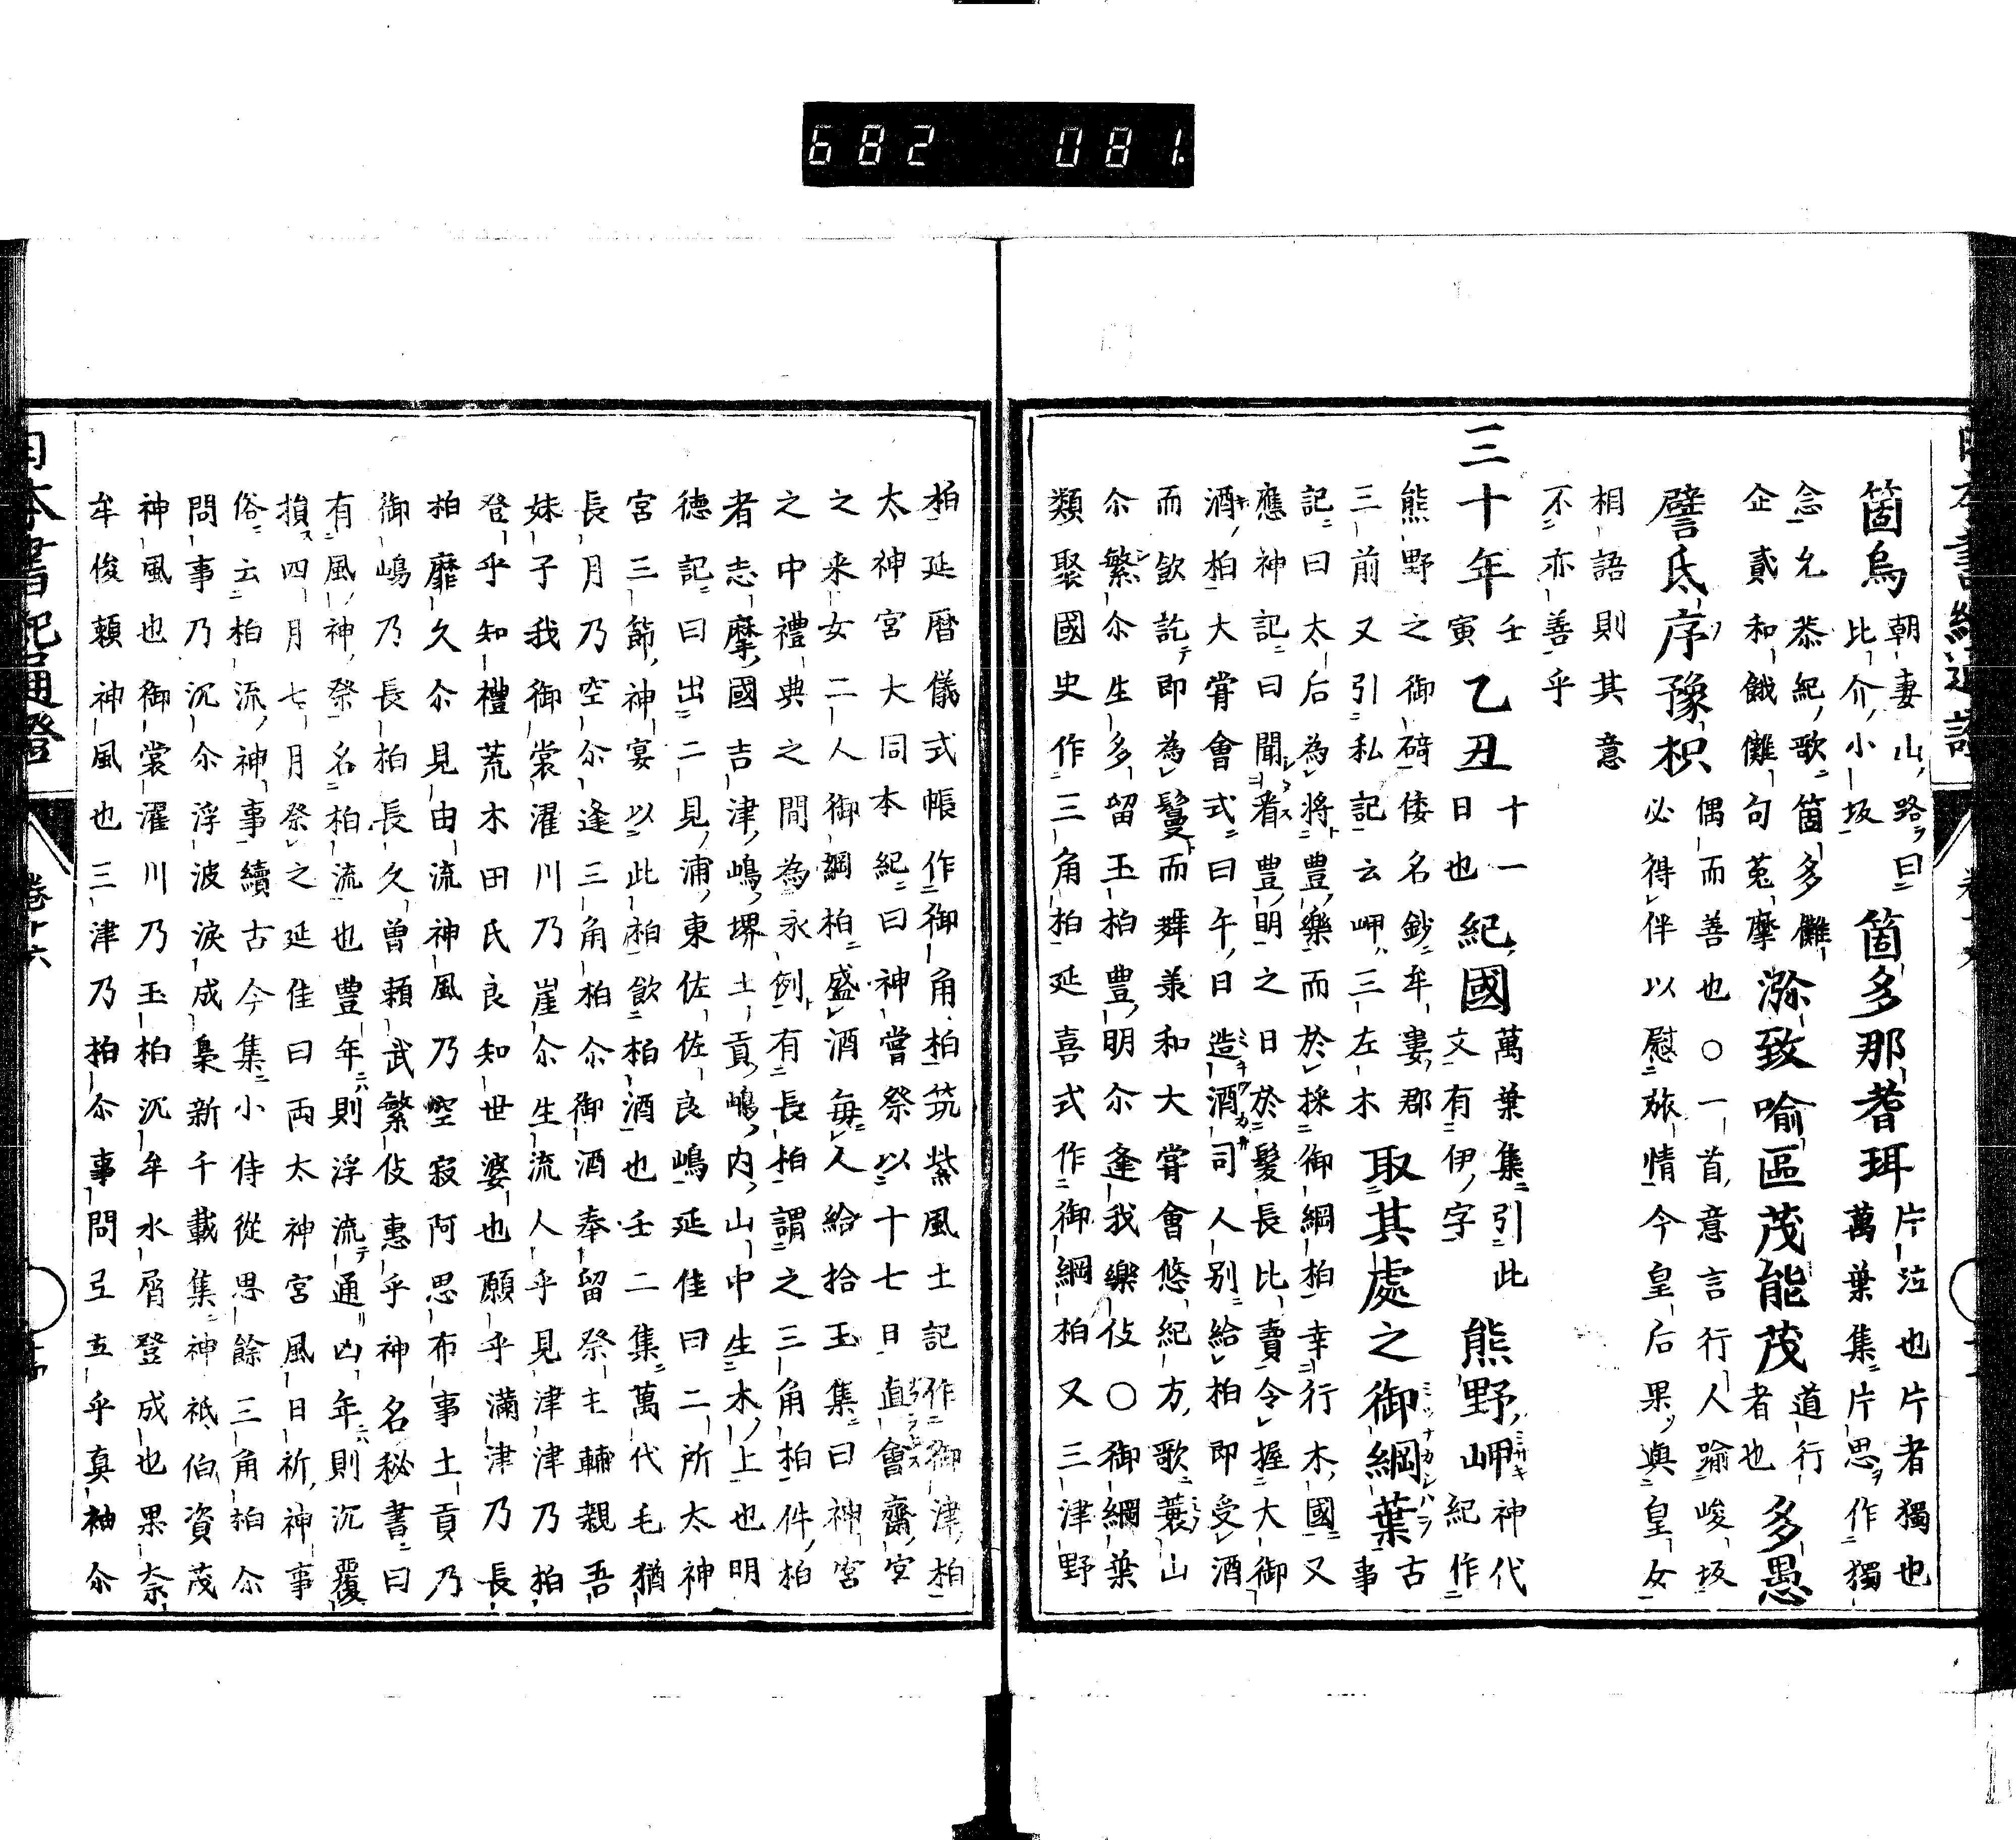 682 081
箇烏 朝妻山路曰比介小坂 箇多那耆珥 片泣也片者獨也萬葉集片思作獨
念允恭紀歌箇多儺企貳和餓儺句菟摩 瀰致喩區茂能茂 道行者也 多愚
譬氐序豫枳 偶而善也○一首意言行人喩峻坂必得伴以慰旅情今皇后果與皇女
相語則其意
不亦善乎
三十年 壬寅 乙丑 十一日也 紀國 萬葉集引此文有伊字 熊野岬 神代紀作
熊野之御碕倭名鈔牟婁郡 取其處之御綱葉 古事
三前又引私記云岬三左木
記曰太后為將豊樂而於採御綱柏幸行木國又
應神記曰聞看豊明之日於髮長比賣令握大御
酒柏大甞會式曰午日造酒司人別給柏即受酒
而飲訖即為鬘而舞羕和大甞會悠紀方歌蓑山
尒繁尒生多留玉柏豊明尒逢我樂伎○御綱葉
類聚國史作三角柏延喜式作御綱柏又三津野
柏延暦儀式帳作御角柏筑紫風土記作御津柏
太神宮大同本紀曰神嘗祭以十七日直會齋宮
之来女二人御綱柏盛酒每人給拾玉集曰神宮
之中禮典之間為永例有長柏謂之三角柏件柏
者志摩國吉津嶋堺土貢嶋内山中生木上也明
徳記曰出二見浦東佐佐良嶋延佳曰二所太神
宮三節神宴以此柏飲柏酒也壬二集萬代毛猶
長月乃空尒逢三角柏尒御酒奉留祭主輔親吾
妹子我御裳濯川乃崖尒生流人乎見津津乃柏
登乎知禮荒木田氏良知世婆也願乎滿津乃長
柏靡久尒見由流神風乃空寂阿思布事土貢乃
御嶋乃長柏長久曽頼武繁伎惠乎神名秘書曰
有風神祭名柏流也豊年則浮流通凶年則沉覆
損四月七月祭之延佳曰両太神宮風日祈神事
俗云柏流神事續古今集小侍從思餘三角柏尒
問事乃沉尒浮波淚成梟新千載集神祇伯資茂
神風也御裳濯川乃玉柏沉牟水屑登成也果奈
牟俊頼神風也三津乃柏尒事問弖立乎真袖尒
日本書紀通證 卷十六